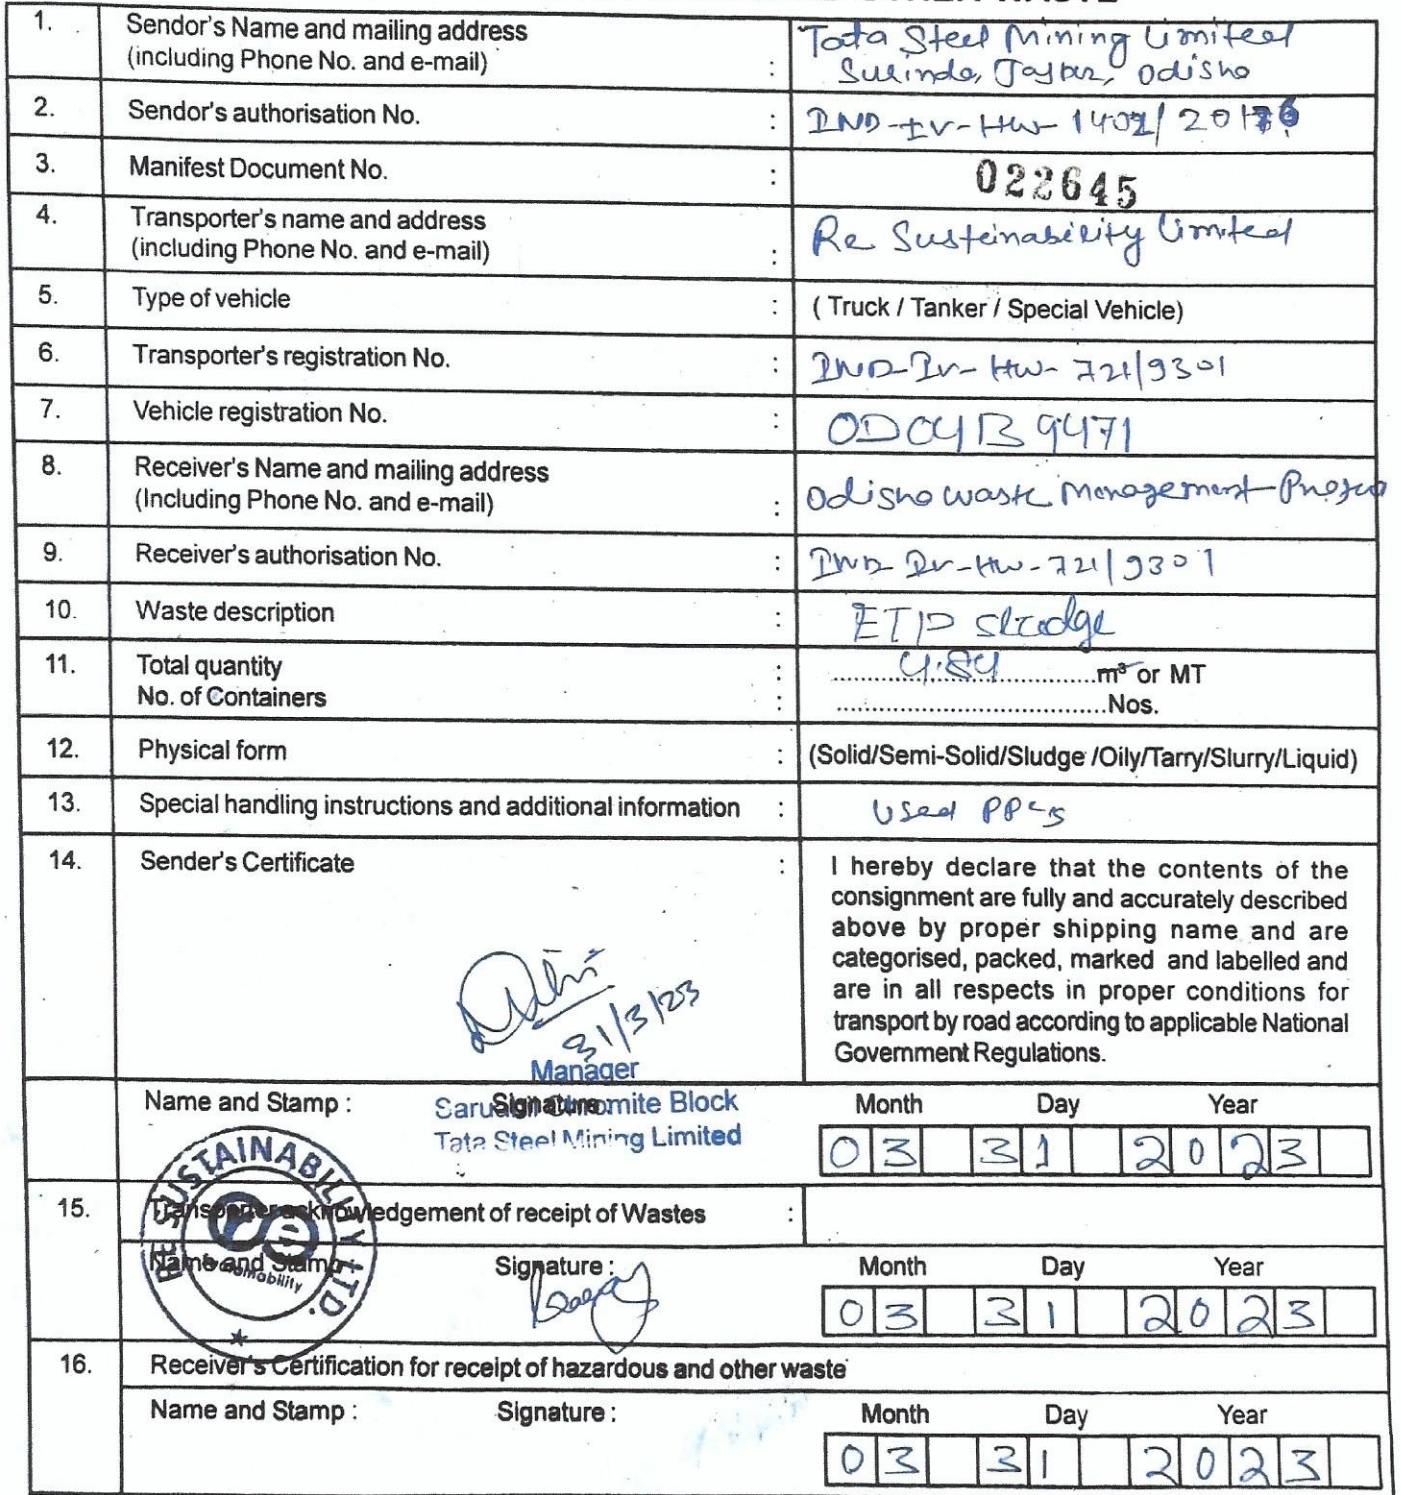 1. Sendor's Name and mailing address
(including Phone No. and e-mail) :
Tata Steel Mining Limited
Odisha
2. Sendor's authorisation No. :
IND-IV-HW-
3. Manifest Document No. : 022645
4. Transporter's name and address
(including Phone No. and e-mail) :
Re Sustainability Limited
5. Type of vehicle : ( Truck / Tanker / Special Vehicle)
6. Transporter's registration No. : IND-IV-HW-721/9301
7. Vehicle registration No. : OD04B 9471
8. Receiver's Name and mailing address
(Including Phone No. and e-mail) :
Odisha waste Management
9. Receiver's authorisation No. : IND-IV-HW-721/9301
10. Waste description : ETP Sludge
11. Total quantity : 4.84 m³ or MT
No. of Containers : Nos.
12. Physical form : (Solid/Semi-Solid/Sludge /Oily/Tarry/Slurry/Liquid)
13. Special handling instructions and additional information : Used
14. Sender's Certificate :
I hereby declare that the contents of the
consignment are fully and accurately described
above by proper shipping name and are
categorised, packed, marked and labelled and
are in all respects in proper conditions for
transport by road according to applicable National
Government Regulations.
31/3/23
Manager
Name and Stamp : Signature : Month Day Year
Chromite Block
Tata Steel Mining Limited
03 31 2023
RE SUSTAINABILITY LTD.
15. Transporter acknowledgement of receipt of Wastes :
Name and Stamp : Signature : Month Day Year
03 31 2023
16. Receiver's Certification for receipt of hazardous and other waste
Name and Stamp : Signature : Month Day Year
03 31 2023